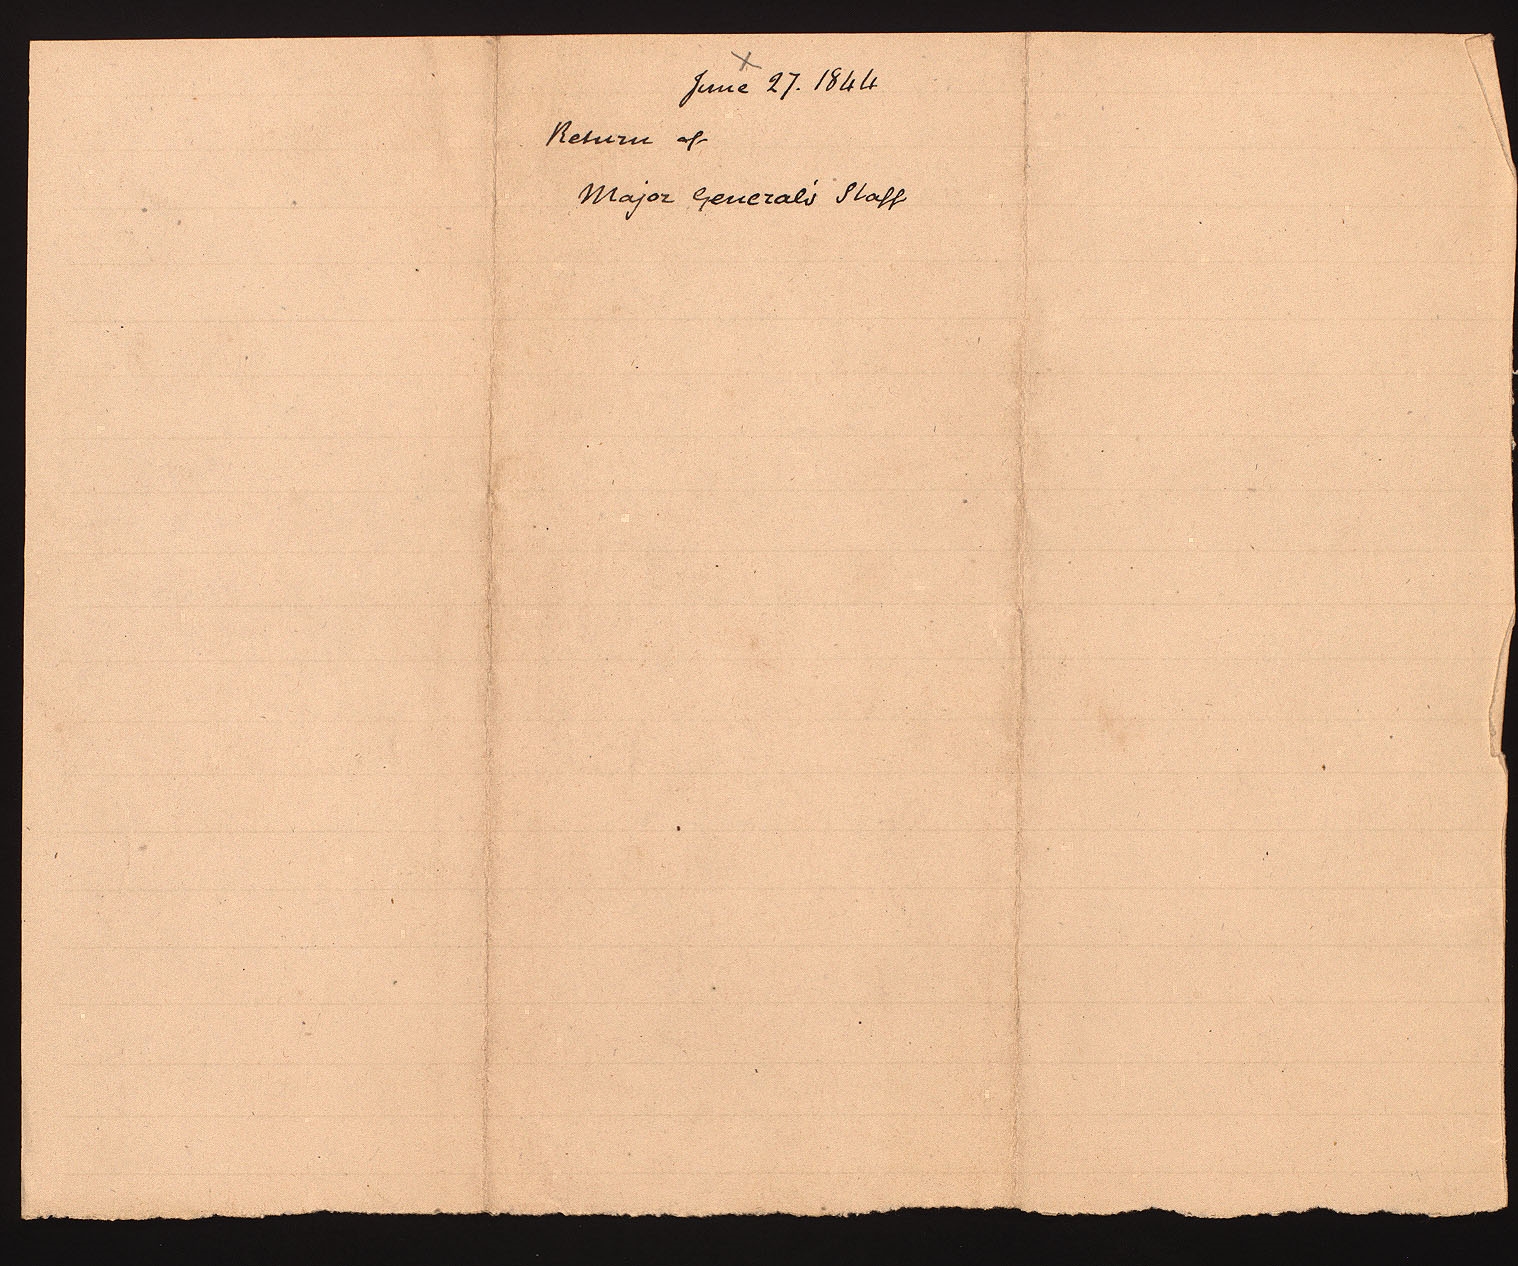 x
June 27. 1844
Return of
Major General's Staff